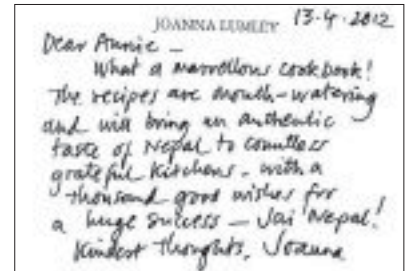 JOANNA LUMLEY 13-4-2012
Dear Annie –
What a marvellous cookbook!
The recipes are mouth-watering
and will bring an authentic
taste of Nepal to countless
grateful kitchens. with a
thousand good wishes for
a huge success – Jai Nepal!
Kindest thoughts, Joanna